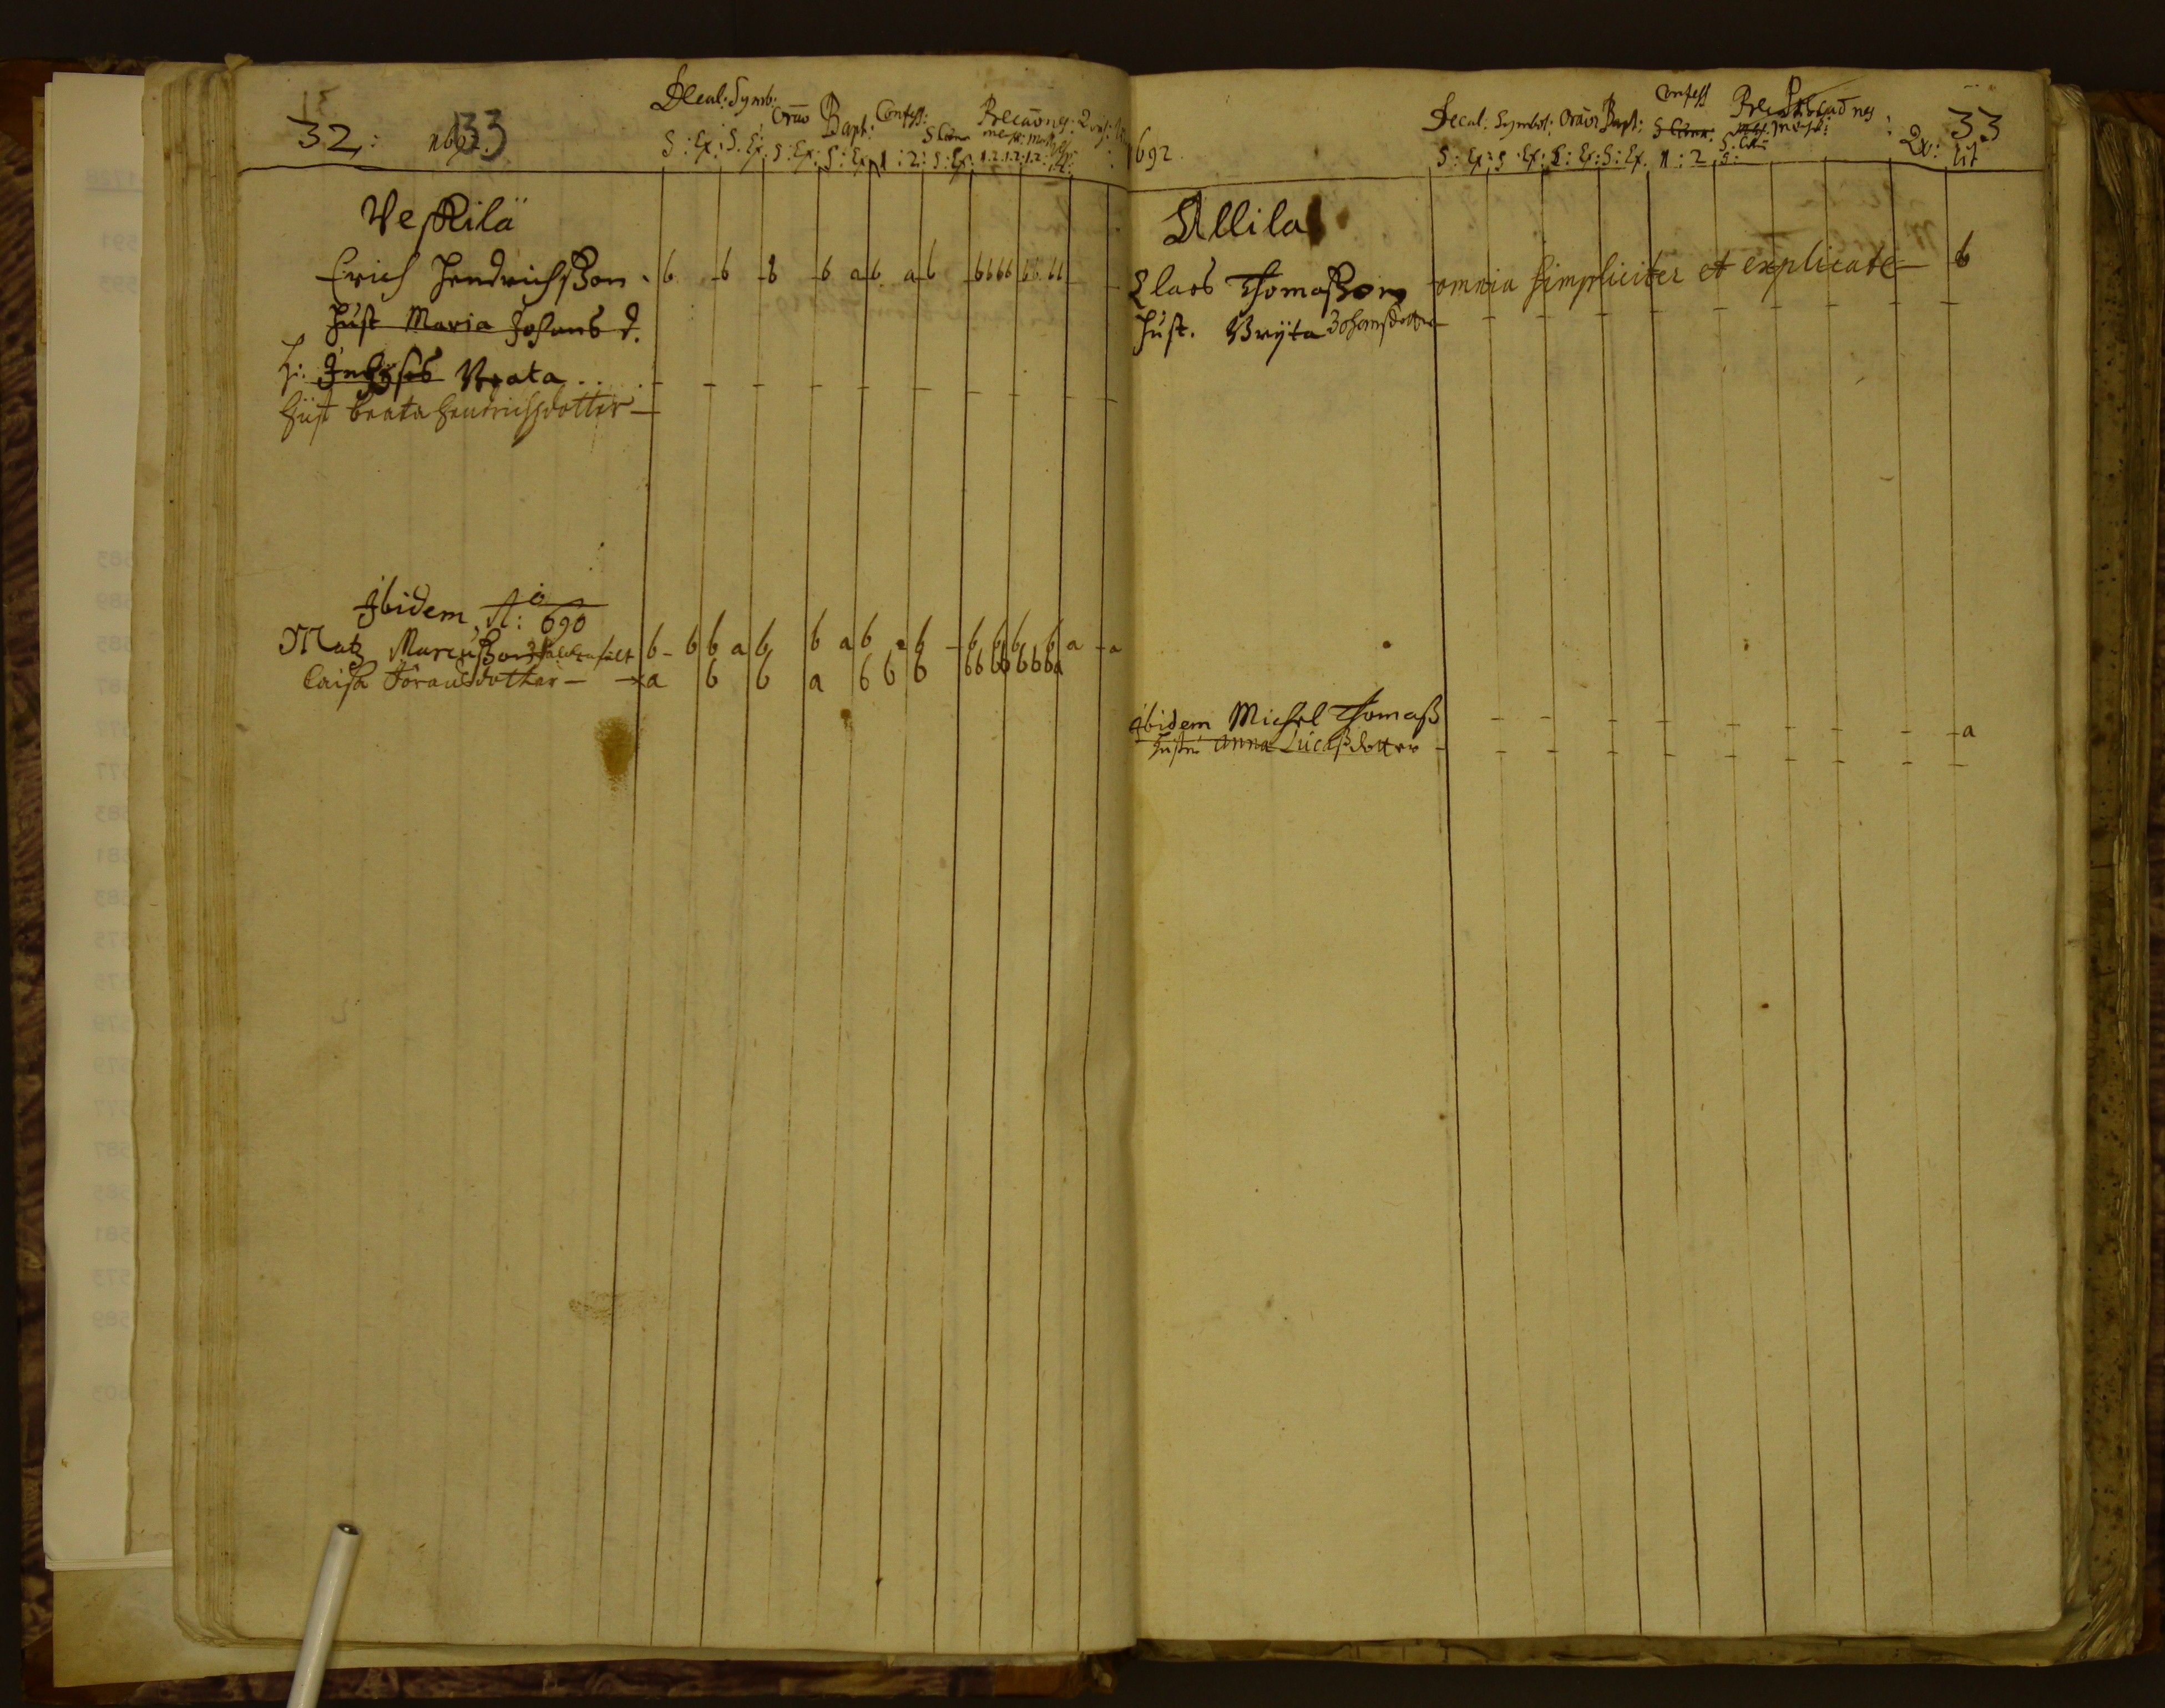 32: 1692. 33
Decal: Symb: Orao Bapt: Confess: S Cœna Precaones:
S: Ex: S. Ex: S: Ex: S: Ex: 1: 2: S: Ex: 1.2. 1.2. 1.2.
Veskilä
Erich Hendrichsson b b b b a b a b bbbb bb bb
Hust Maria Johans d.
h: Beata - - - - - - - - -
Hust beata hendrichsdotter -
Ibidem, A:o 690
Matz Marcusson b - b b a b b a b a b - b b b b a - a
Caisa Göransdotter - - a b b a b b b bb bb bbba
692. 33
Decal: Symbol: Oraõr Bapt: Confess S Cœna
S: Ex: S: Ex: S: Ex: S: Ex. 1: 2 S:
Allila
Claes Thomasson omnia simpliciter et explicate - b
Hust. Bryta Johansdotter - - - - - - - - -
Ibidem Michel Thomass - - - - - - - - - a
Hustru Anna Lucassdotter - - - - - - - - - -